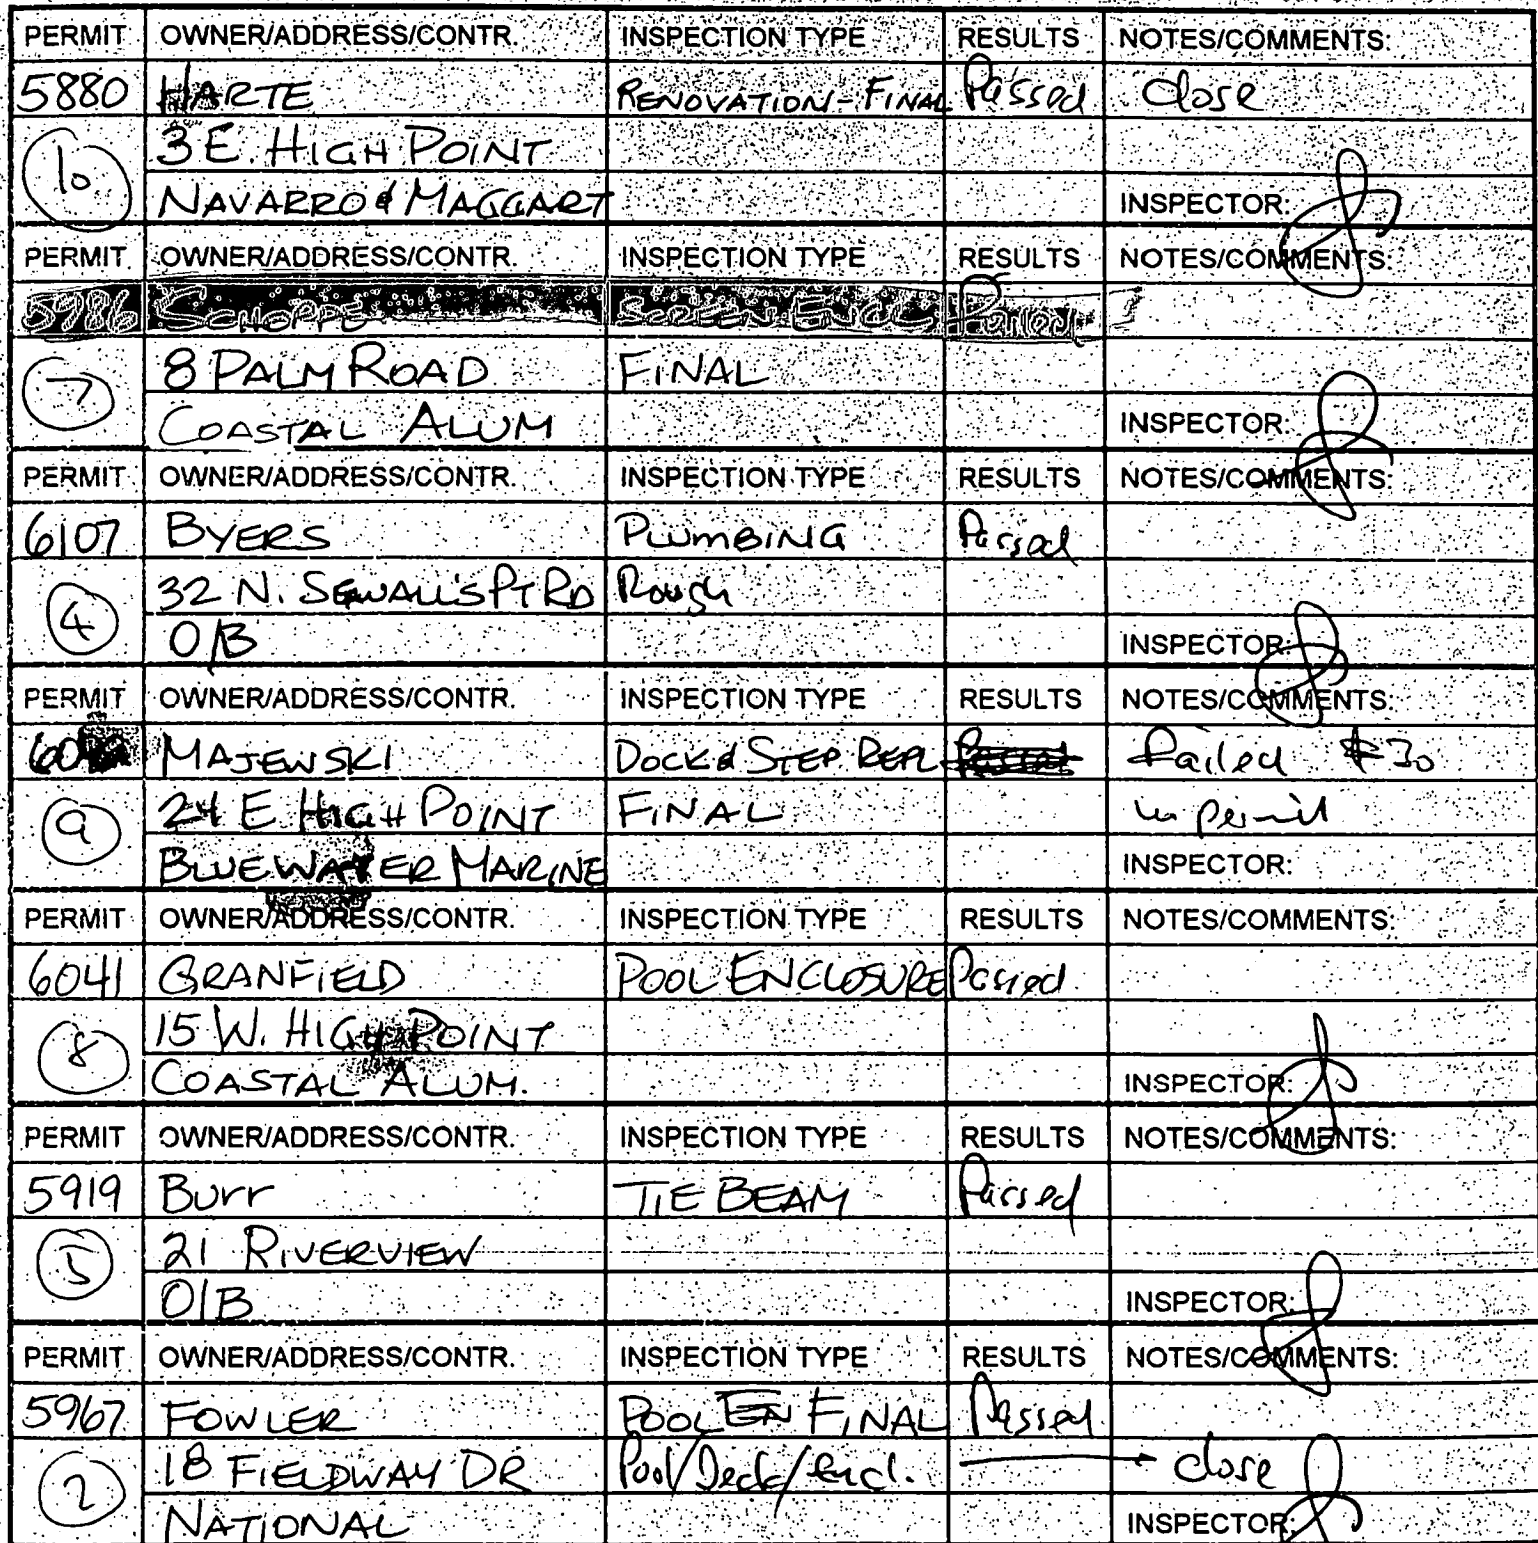 PERMIT OWNER/ADDRESS/CONTR. INSPECTION TYPE RESULTS NOTES/COMMENTS:
5880 HARTE RENOVATION-FINAL Passed close
10 3 E. HIGH POINT
NAVARRO & MAGGART INSPECTOR:
PERMIT OWNER/ADDRESS/CONTR. INSPECTION TYPE RESULTS NOTES/COMMENTS:
5986 SCHOPPE SCREEN ENCL Passed
7 8 PALM ROAD FINAL
COASTAL ALUM INSPECTOR:
PERMIT OWNER/ADDRESS/CONTR. INSPECTION TYPE RESULTS NOTES/COMMENTS:
6107 BYERS PLUMBING Passed
4 32 N. SEWALL'S PT RD Rough
O/B INSPECTOR:
PERMIT OWNER/ADDRESS/CONTR. INSPECTION TYPE RESULTS NOTES/COMMENTS:
MAJEWSKI DOCK & STEP REPL Passed failed $30
9 24 E. HIGH POINT FINAL permit
BLUEWATER MARINE INSPECTOR:
PERMIT OWNER/ADDRESS/CONTR. INSPECTION TYPE RESULTS NOTES/COMMENTS:
6041 GRANFIELD POOL ENCLOSURE Passed
8 15 W. HIGH POINT
COASTAL ALUM. INSPECTOR:
PERMIT OWNER/ADDRESS/CONTR. INSPECTION TYPE RESULTS NOTES/COMMENTS:
5919 Burr TIE BEAM Passed
5 21 RIVERVIEW
O/B INSPECTOR:
PERMIT OWNER/ADDRESS/CONTR. INSPECTION TYPE RESULTS NOTES/COMMENTS:
5967 FOWLER POOL EN FINAL Passed
2 18 FIELDWAY DR Pool/Deck/encl. close
NATIONAL INSPECTOR: